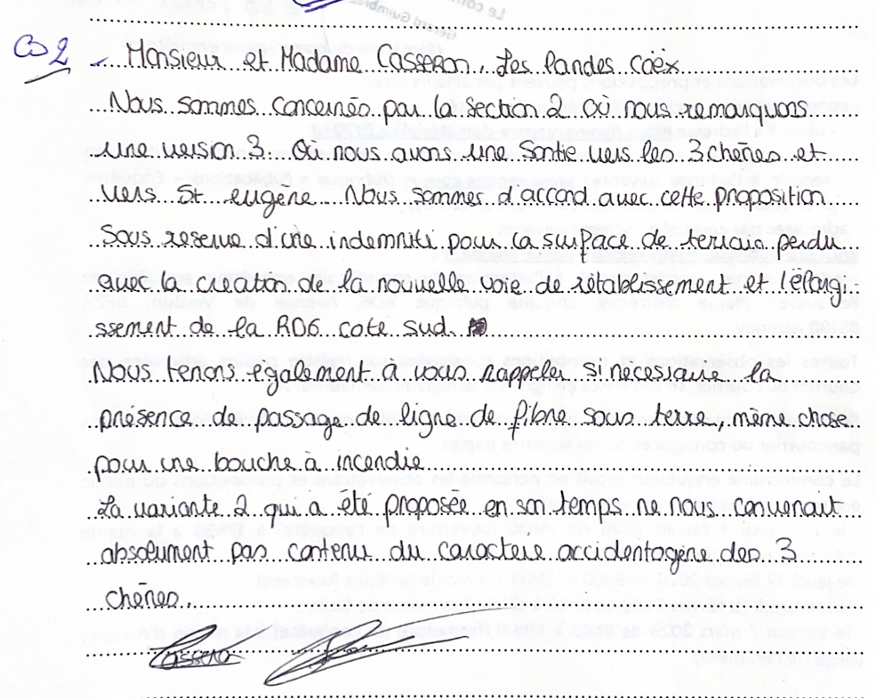 CO2 Monsieur et Madame Casseron. Les Landes Coëx.
Nous sommes concernés par la section 2 où nous remarquons
une version 3. Où nous avons une sortie vers les 3 chênes et
vers St eugène. Nous sommes d'accord avec cette proposition
sous reserve d'une indemnité pour la surface de terrain perdu
avec la creation de la nouvelle voie de rétablissement et l'élargi-
ssement de la RD6 coté sud.
Nous tenons également à vous rappeler si nécessaire la
présence de passage de ligne de fibre sous terre, même chose
pour une bouche à incendie
La variante 2 qui a été proposée en son temps ne nous convenait
absolument pas contenu du caractère accidentogène des 3
chênes.